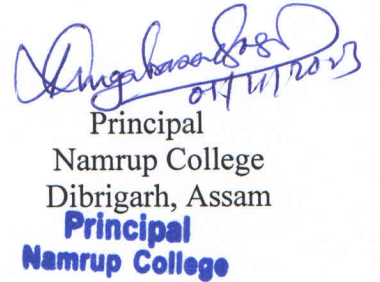 01/11/2023
Principal
Namrup College
Dibrigarh, Assam
Principal
Namrup College